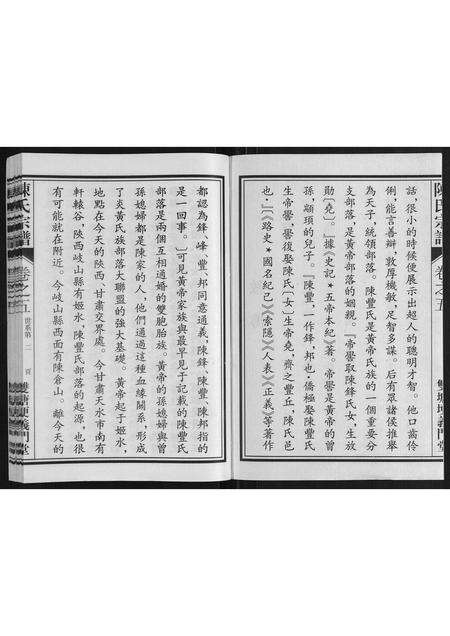 陳氏宗譜 卷之五 雙塘塆義門堂
話，很小的時候便展示出超人的聰明才智。他口齒伶
俐，能言善辯，敦厚機敏，足智多謀。后有眾諸侯推舉
為天子，統領部落。陳豐氏是黃帝氏族的一個重要分
支部落，是黃帝部落的姻親。『帝嚳取陳鋒氏女，生放
勛〔堯〕。』據《史記★五帝本紀》著。帝嚳是黃帝的曾
孫，顓頊的兒子。『陳豐，一作鋒，邦也』僑極娶陳豐氏
生帝嚳，嚳復娶陳氏〔女〕生帝堯，齊之豐丘，陳氏邑
也。』〔《路史★國名紀己》《索隱》《人表》《正義》等著作
都認為鋒、峰、豐、邦同意通義，陳鋒、陳豐、陳邦指的
是一回事。〕可見黃帝家族與最早見于記載的陳豐氏
部落是兩個互相通婚的雙胞胎族。黃帝的孫媳婦與曾
孫媳婦都是陳家的人，他們通過這種血緣關系，形成
了炎黃氏族部落大聯盟的強大基礎。黃帝起于姬水，
地點在今天的陝西、甘肅交界處。今甘肅天水市南有
軒轅谷，陝西岐山縣有姬水，陳豐氏部落的起源，也很
有可能就在附近。今岐山縣西面有陳倉山。離今天的
陳氏宗譜 卷之五 世系第一 頁 雙塘塆義門堂